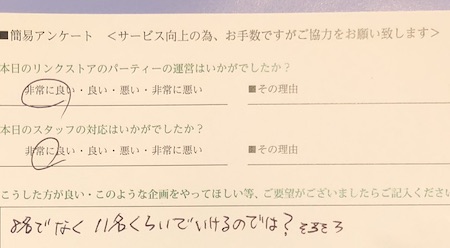 ■簡易アンケート <サービス向上の為、お手数ですがご協力をお願い致します>
本日のリンクストアのパーティーの運営はいかがでしたか?
非常に良い・良い・悪い・非常に悪い ■その理由
本日のスタッフの対応はいかがでしたか?
非常に良い・良い・悪い・非常に悪い ■その理由
こうした方が良い・このような企画をやってほしい等、ご要望がございましたらご記入ください
8名でなく 11名くらいでいけるのでは? そろそろ